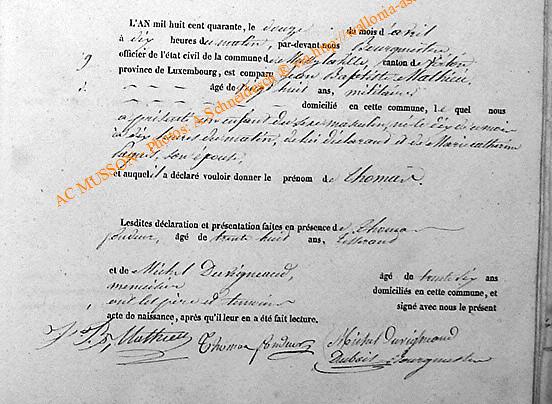 L'AN mil huit cent quarante, le douze du mois d'avril
à dix heures du matin, par-devant nous Bourgmestre
officier de l'état civil de la commune de canton de
province de Luxembourg, est comparu Jean Baptiste Mathieu
âgé de huit ans, militaire
domicilié en cette commune, lequel nous
a présenté un enfant du sexe masculin, né le dix du mois
à dix heures du matin, de lui déclarant et de Marie catherine
son épouse,
et auquel il a déclaré vouloir donner le prénom de Thomas.
Lesdites déclaration et présentation faites en présence de Thomas
fondeur, âgé de trente huit ans,
et de Michel Duvigneaud, âgé de trente six ans
menuisier domiciliés en cette commune, et
ont les père et témoins signé avec nous le présent
acte de naissance, après qu'il leur en a été fait lecture.
J. Bte Mathieu Thomas fondeur Michel Duvigneaud
Dubois Bourgmestre
AC MUSSON - Photos: A Schneiderck ©